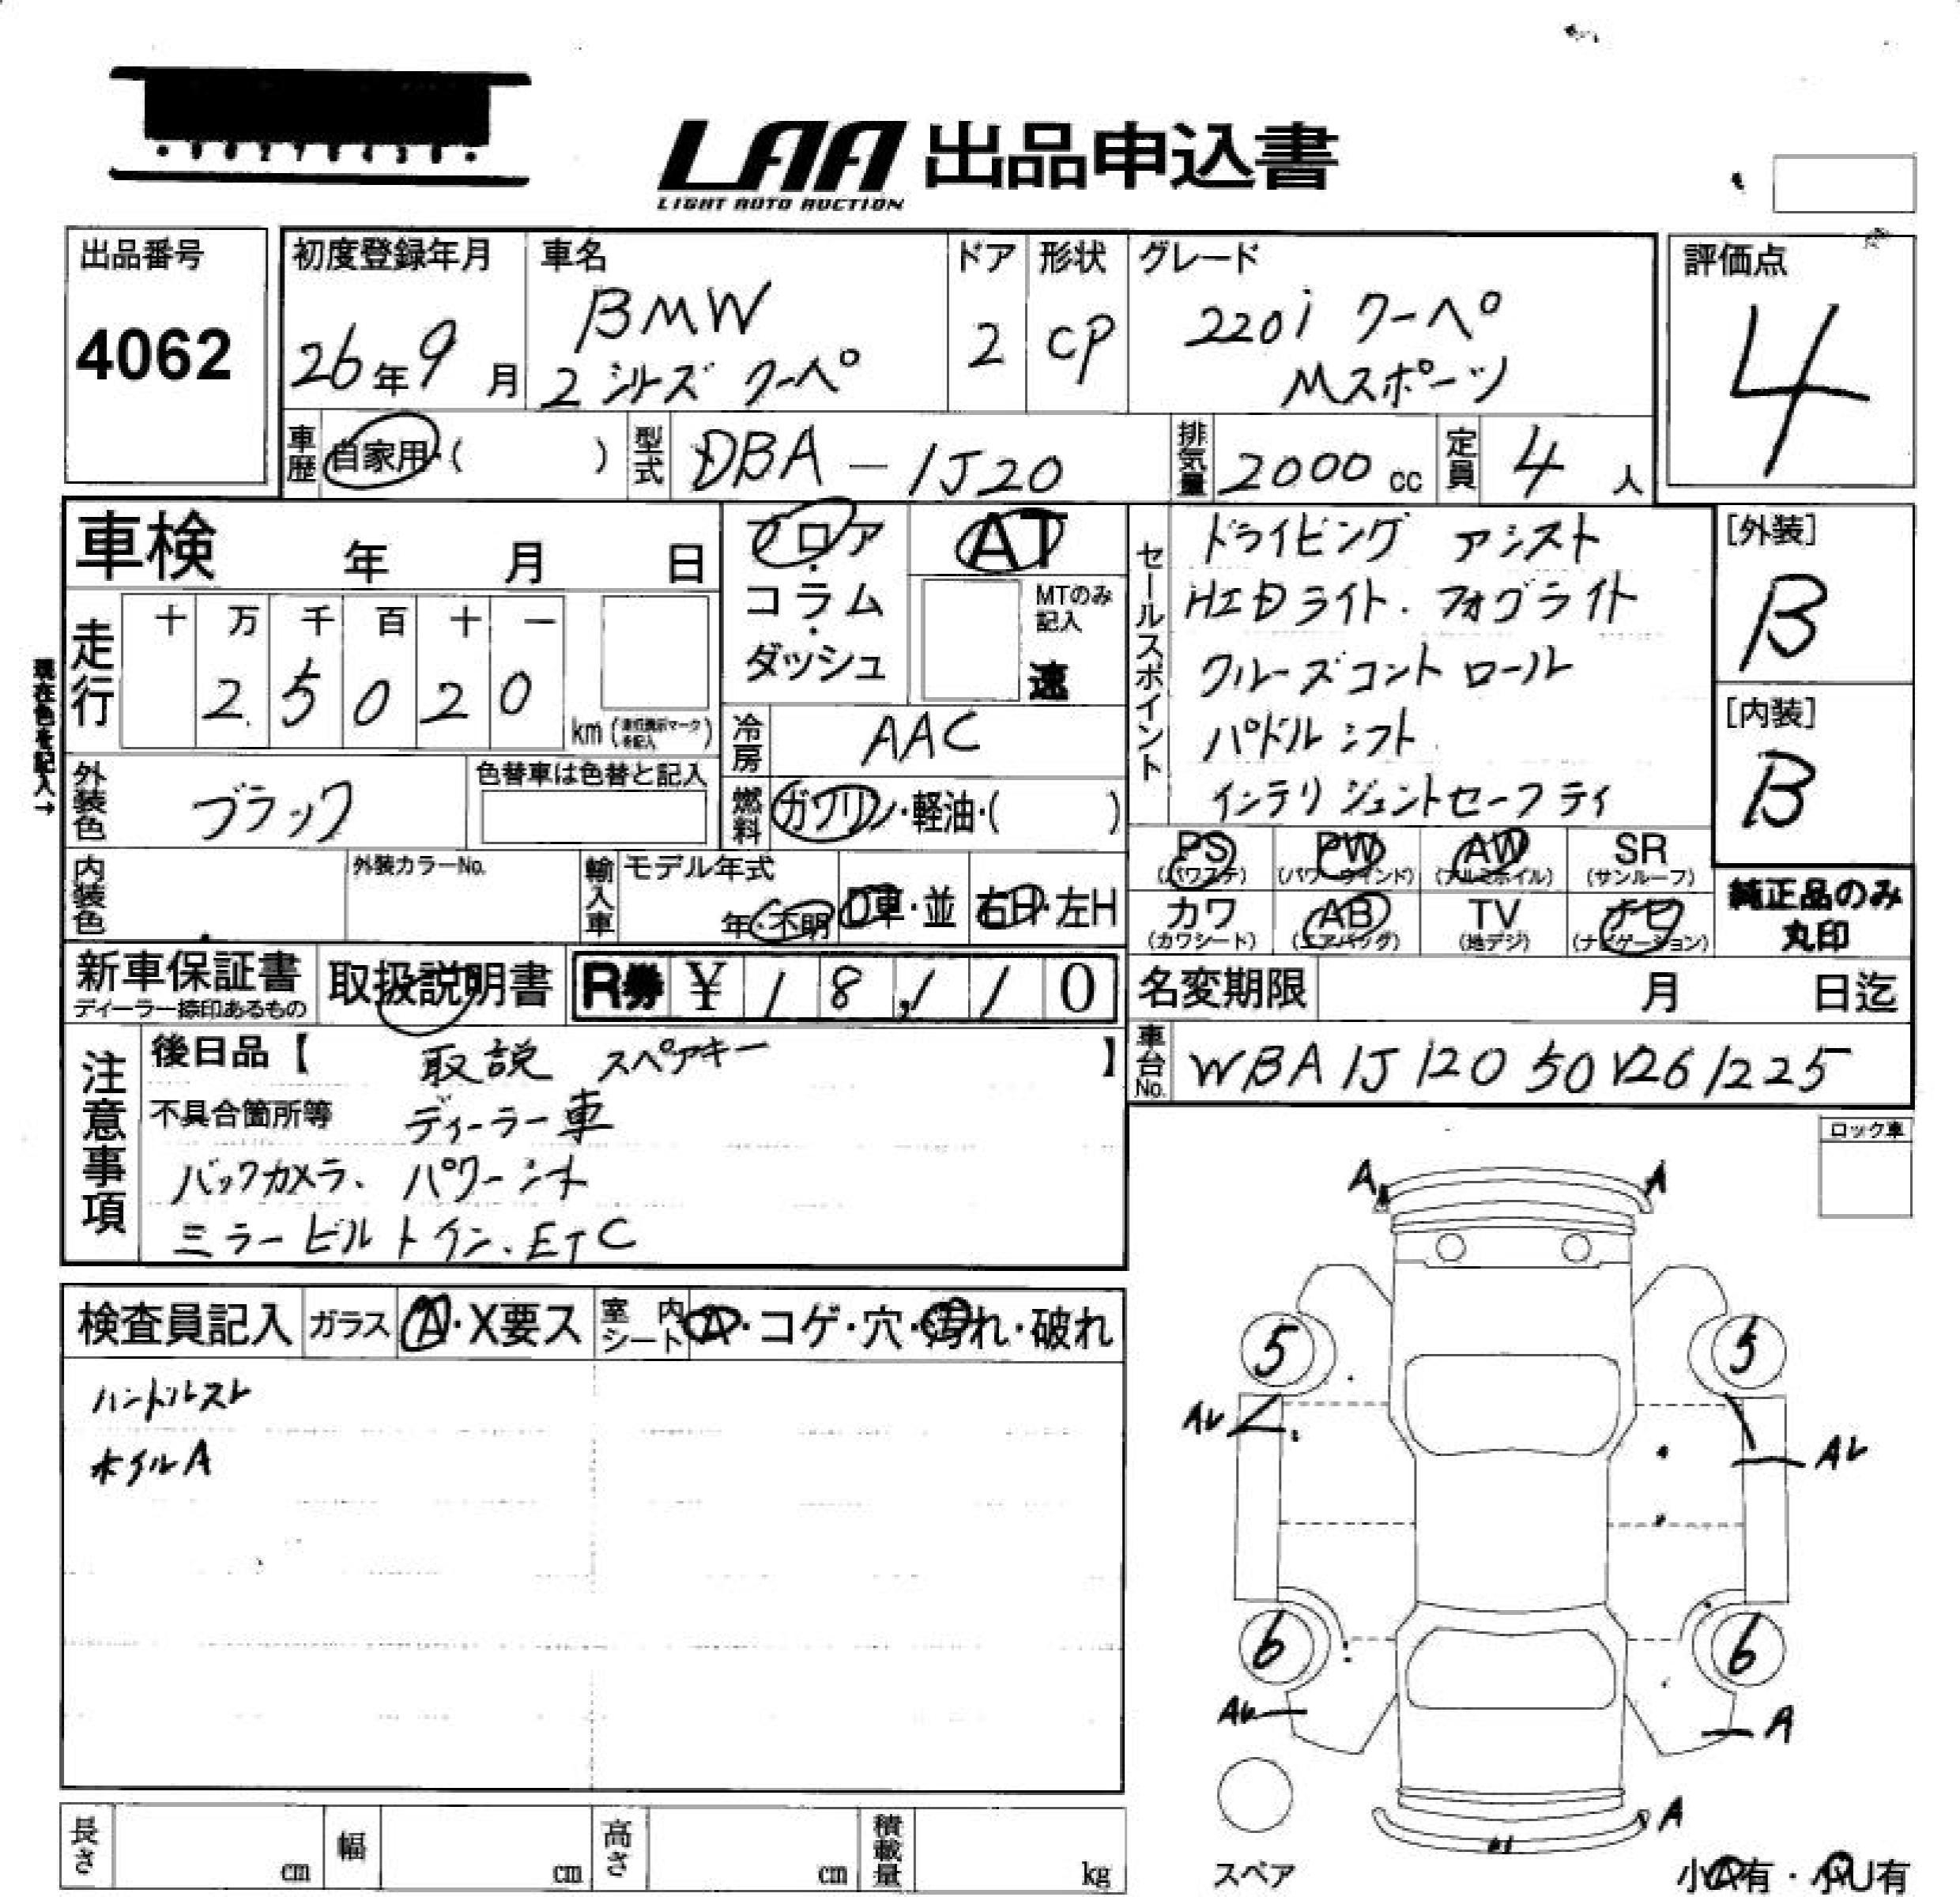 LAA 出品申込書
LIGHT AUTO AUCTION
出品番号
4062
初度登録年月
26年9月
車名
BMW
2シリーズ クーペ
ドア
2
形状
CP
グレード
220i クーペ
Mスポーツ
評価点
4
車歴 自家用・( )
型式 DBA-1J20
排気量 2000cc
定員 4人
車検 年 月 日
フロア・コラム・ダッシュ
AT
MTのみ記入
速
走行
十 万 千 百 十 一
2 5 0 2 0
km
現在色を記入→
冷房 AAC
外装色 ブラック
色替車は色替と記入
燃料 ガソリン・軽油・( )
内装色
外装カラーNo.
輸入車
モデル年式
年・不明
D車・並
右H・左H
セールスポイント
ドライビング アシスト
HIDライト.フォグライト
クルーズコントロール
パドルシフト
インテリジェントセーフティ
[外装]
B
[内装]
B
PS (パワステ)
PW (パワーウインド)
AW (アルミホイル)
SR (サンルーフ)
カワ (カワシート)
AB (エアバッグ)
TV (地デジ)
ナビ (ナビゲーション)
純正品のみ
丸印
新車保証書
ディーラー捺印あるもの
取扱説明書
R券 ¥ 18,110
名変期限 月 日迄
車台No. WBA1J12050V261225
注意事項
後日品【 取説 スペアキー 】
不具合箇所等 ディーラー車
バックカメラ、パワーシート
ミラービルトイン、ETC
ロック車
検査員記入
ガラス A・X要ス
室内シート A・コゲ・穴・汚れ・破れ
ハンドルスレ
ホイルA
A A
5 5
Aレ Aレ
6 6
Aレ A
A
スペア
小A有・小U有
長さ cm
幅 cm
高さ cm
積載量 kg